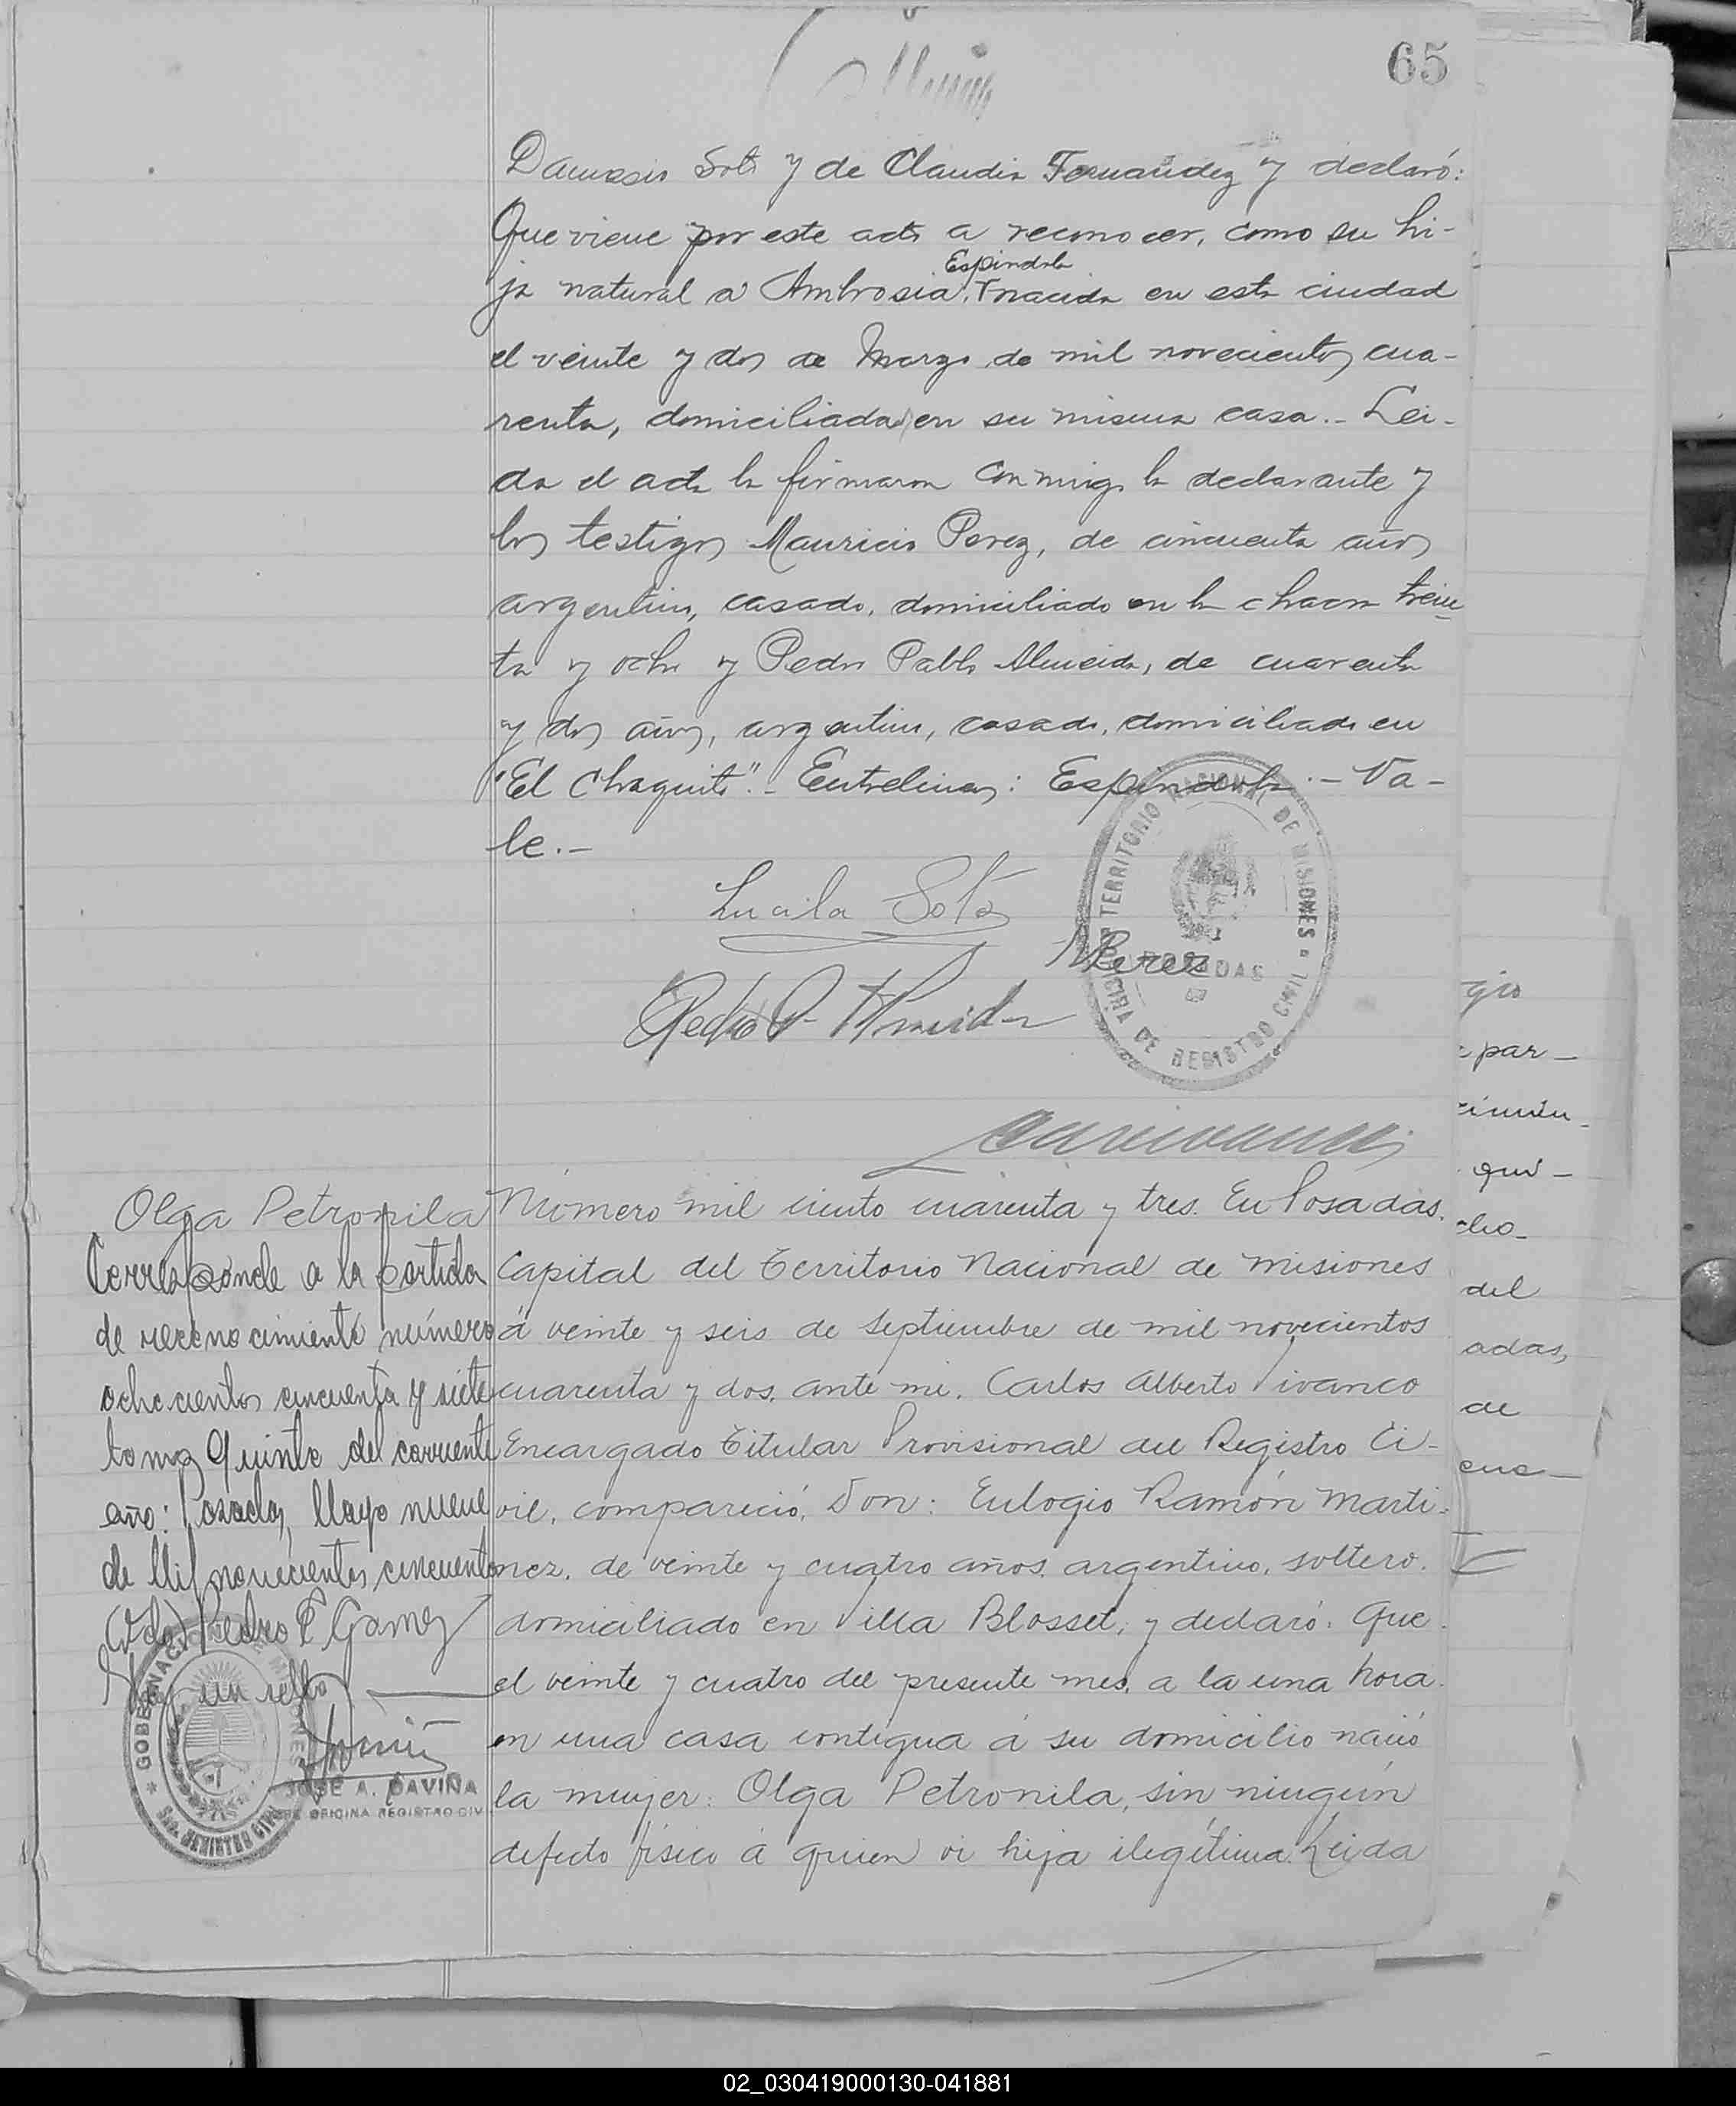 65
Damasio Soto y de Claudia Fernandez y declaró:
Que viene por este acto a reconocer, como su hi-
ja natural a Ambrosia, Espindola nacida en esta ciudad
el veinte y dos de Marzo de mil novecientos cua-
renta, domiciliada en su misma casa.- Lei-
da el acta la firmaron conmigo la declarante y
los testigos Mauricio Perez, de cincuenta años
argentino, casado, domiciliado en la chacra trein-
ta y ocho y Pedro Pablo Almeida, de cuarenta
y dos años, argentino, casado, domiciliado en
"El Chaquito".- Entrelineas: Espindola.- Va-
le.-
TERRITORIO NACIONAL DE MISIONES
POSADAS
DE REGISTRO CIVIL
Lucila Soto
MPerez
Pedro P. Almeida
Olga Petronila
Corresponde a la partida
de reconocimiento número
ochocientos cincuenta y siete
tomo Quinto del corriente
año: Posadas, Mayo nueve
de Mil novecientos cincuenta
(Fdo) Pedro E Gomez
Hay un sello
GOBERNACION MISIONES
REGISTRO CIVIL
JOSÉ A. DAVIÑA
OFICINA REGISTRO CIV
Número mil ciento cuarenta y tres. En Posadas.
Capital del Territorio Nacional de Misiones
á veinte y seis de Septiembre de mil novecientos
cuarenta y dos, ante mi, Carlos Alberto Vivanco
Encargado Titular Provisional del Registro Ci-
vil, compareció, Don: Eulogio Ramón Marti-
nez, de veinte y cuatro años, argentino, soltero,
domiciliado en Villa Blosset, y declaró: Que
el veinte y cuatro del presente mes, a la una hora
en una casa contigua á su domicilio nació
la mujer: Olga Petronila, sin ningún
defecto físico á quien vi hija ilegítima. Leida
gio
par-
qui-
cho-
del
adas,
de
cua-
02_030419000130-041881